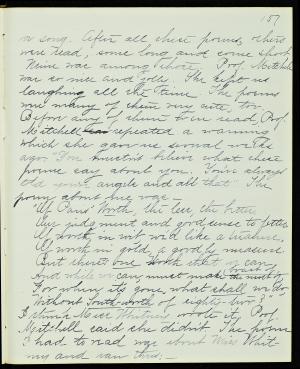 157
in song. After all these poems, others
were read, some long and some short
Mine was among those. Prof. Mitchell
was so nice and jolly. She kept us
laughing all the time. The poems
were many of them very cute, too.
Before any of them been read, Prof
Mitchell repeated a warning
which she gave us several weeks
ago. "You mustn't believe what these
poems say about you. You're always
angels and all that". The
poem about me was—
"Of Worth, the less the better
and good sense to fetter
Of worth in wit with like a measure,
Of worth in gold, a goodly measure
But there's one Worth that we can,
And while we can, must make the most of,
For when its gone, what shall we do
Without South-worth of eighty-two?"
I think Miss Whitney wrote it, Prof.
Mitchell said she didn't. The poem
I had to read was about Miss Whit-
ney and ran thus:—